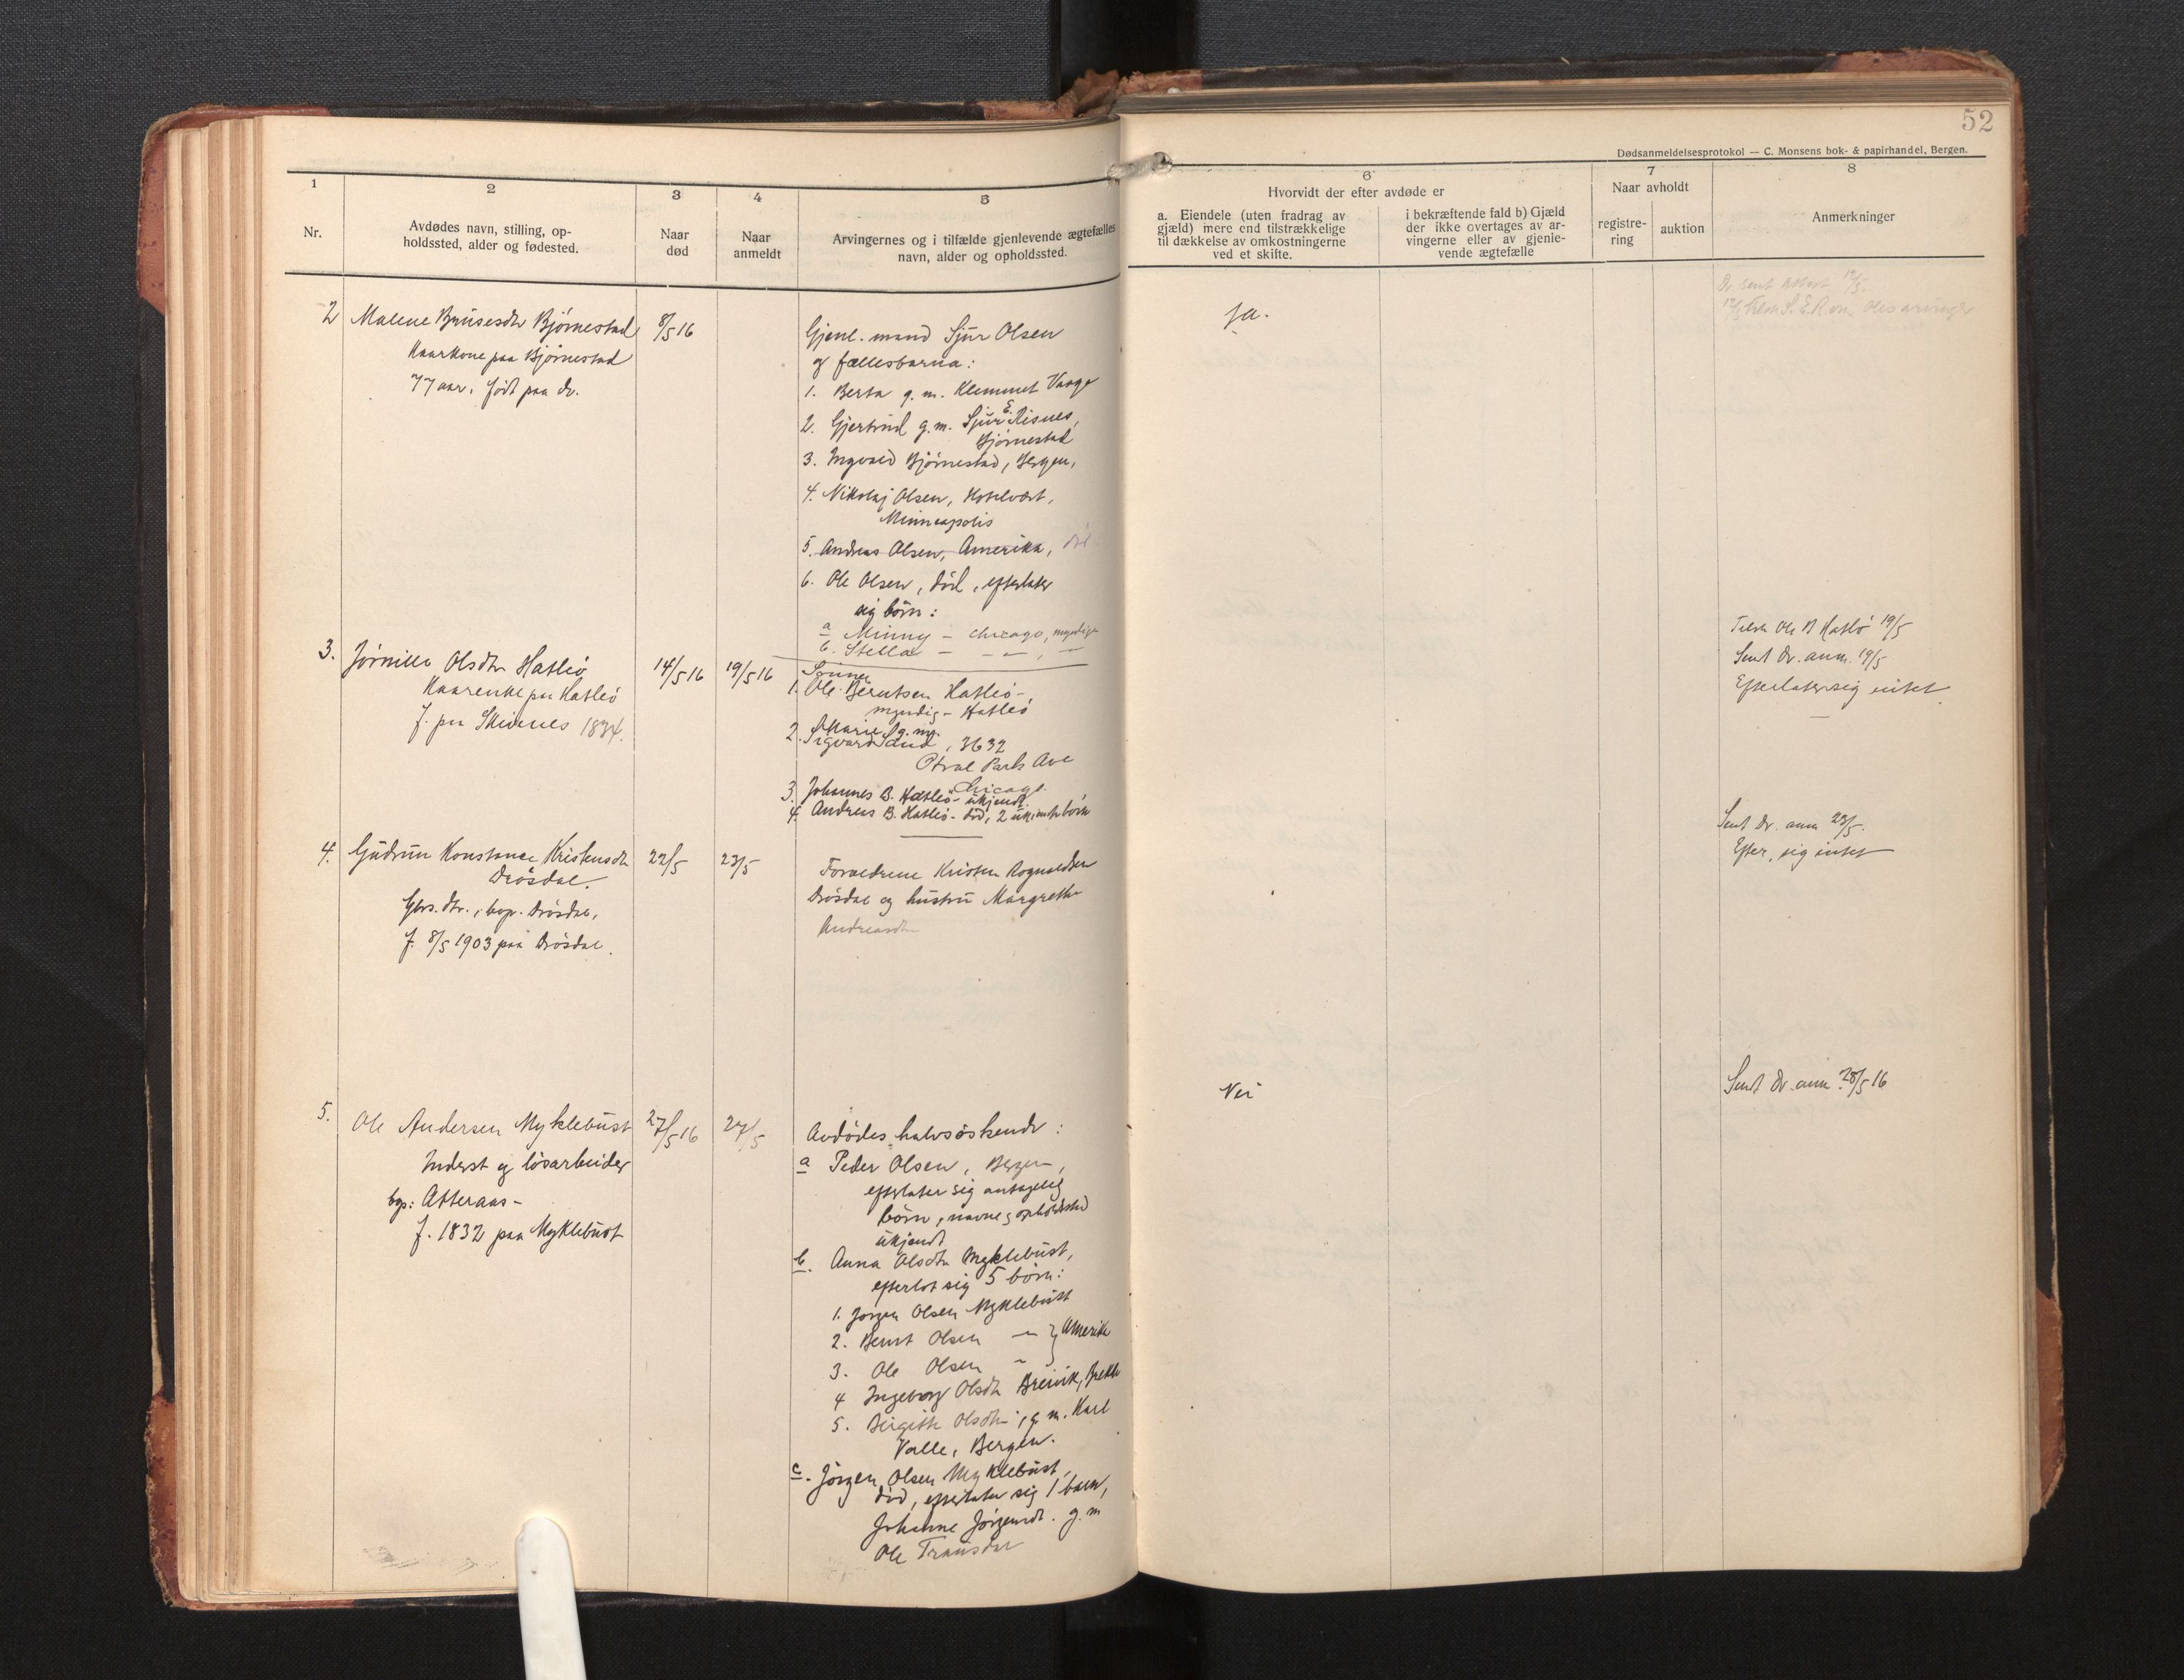 52
Dødsanmeldelsesprotokol — C. Monsens bok- & papirhandel, Bergen.
1
Nr.
2
Avdødes navn, stilling, op-
holdssted, alder og fødested.
3
Naar
død
4
Naar
anmeldt
5
Arvingernes og i tilfælde gjenlevende ægtefælles
navn, alder og opholdssted.
6
Hvorvidt der efter avdøde er
a. Eiendele (uten fradrag av
gjæld) mere end tilstrækkelige
til dækkelse av omkostningerne
ved et skifte.
i bekræftende fald b) Gjæld
der ikke overtages av ar-
vingerne eller av gjenle-
vende ægtefælle
7
Naar avholdt
registre-
ring
auktion
8
Anmerkninger
2 Malene Brusesdtr Bjørnestad
Kaarkone paa Bjørnestad
77 aar. født paa do.
8/5 16
Gjenl. mand Sjur Olsen
og fællesbarna:
1. Berta g. m. Klemmet Vaage
2. Gjertrud g. m. Sjur E. Risnes,
Bjørnestad
3. Ingvald Bjørnestad, Bergen,
4. Nikolaj Olsen, Hotelvært,
Minneapolis
5. Andreas Olsen, Amerika, død
6. Ole Olsen, død, efterlater
sig börn:
a Minny – Chicago, myndige
b. Stella – – – , –
Ja.
Dr. sent attest 12/5.
3. Jørnille Olsdtr Hatlö
Kaarenke paa Hatleö
f. paa Skivenes 1834.
14/5 16
19/5 16
Sönner
1. Ole Berntsen Hatleö –
myndig – Hatleö
2. Marie g. m.
Sigvard Sand, 3632
Park Ave
Chicago.
3. Johannes B. Hatleö – ukjendt.
4. Andreas B. Hatleö – död, 2 ukjendte börn
Tilsk Ole B Hatlö 19/5
Sent Dr. anm. 19/5
Efterlater sig intet.
4. Gudrun Konstance Kristensdtr
Drösdal.
Gbrs. dtr., bop. Drösdal,
f. 8/5 1903 paa Drösdal.
22/5
23/5
Forældrene Kristen Rognaldsen
Drösdal og hustru Margrethe
Andreasdtr
Sent Dr. anm 23/5.
Efter. sig intet
5. Ole Andersen Myklebust
Inderst og lösarbeider
bop: Atteraas –
f. 1832 paa Myklebust
27/5 16
27/5
Avdödes halvsöskende:
a Peder Olsen, Bergen,
efterlater sig antagelig
börn, navne og opholdssted
ukjendt
b. Anna Olsdtr Myklebust,
efterlot sig 5 börn:
1. Jørgen Olsen Myklebust
2. Bernt Olsen – } Amerika
3. Ole Olsen –
4 Ingeborg Olsdtr Breivik, Brekke
5. Birgitte Olsdtr, g. m. Karl
Valle, Bergen.
c. Jörgen Olsen Myklebust,
död, efterlater sig 1 barn,
Johanne Jörgensdt. g. m
Ole Transdal
Nei
Sent Dr. anm 28/5 16